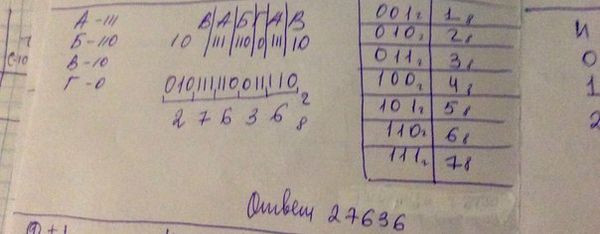 А - 111
Б - 110
В - 10
Г - 0
В|А|Б|Г|А|В
10 |111|110|0|111|10
010111110011110₂
2 7 6 3 6 ₈
001₂ 1₈
010₂ 2₈
011₂ 3₈
100₂ 4₈
101₂ 5₈
110₂ 6₈
111₂ 7₈
Ответ 27636
и
0
1
2